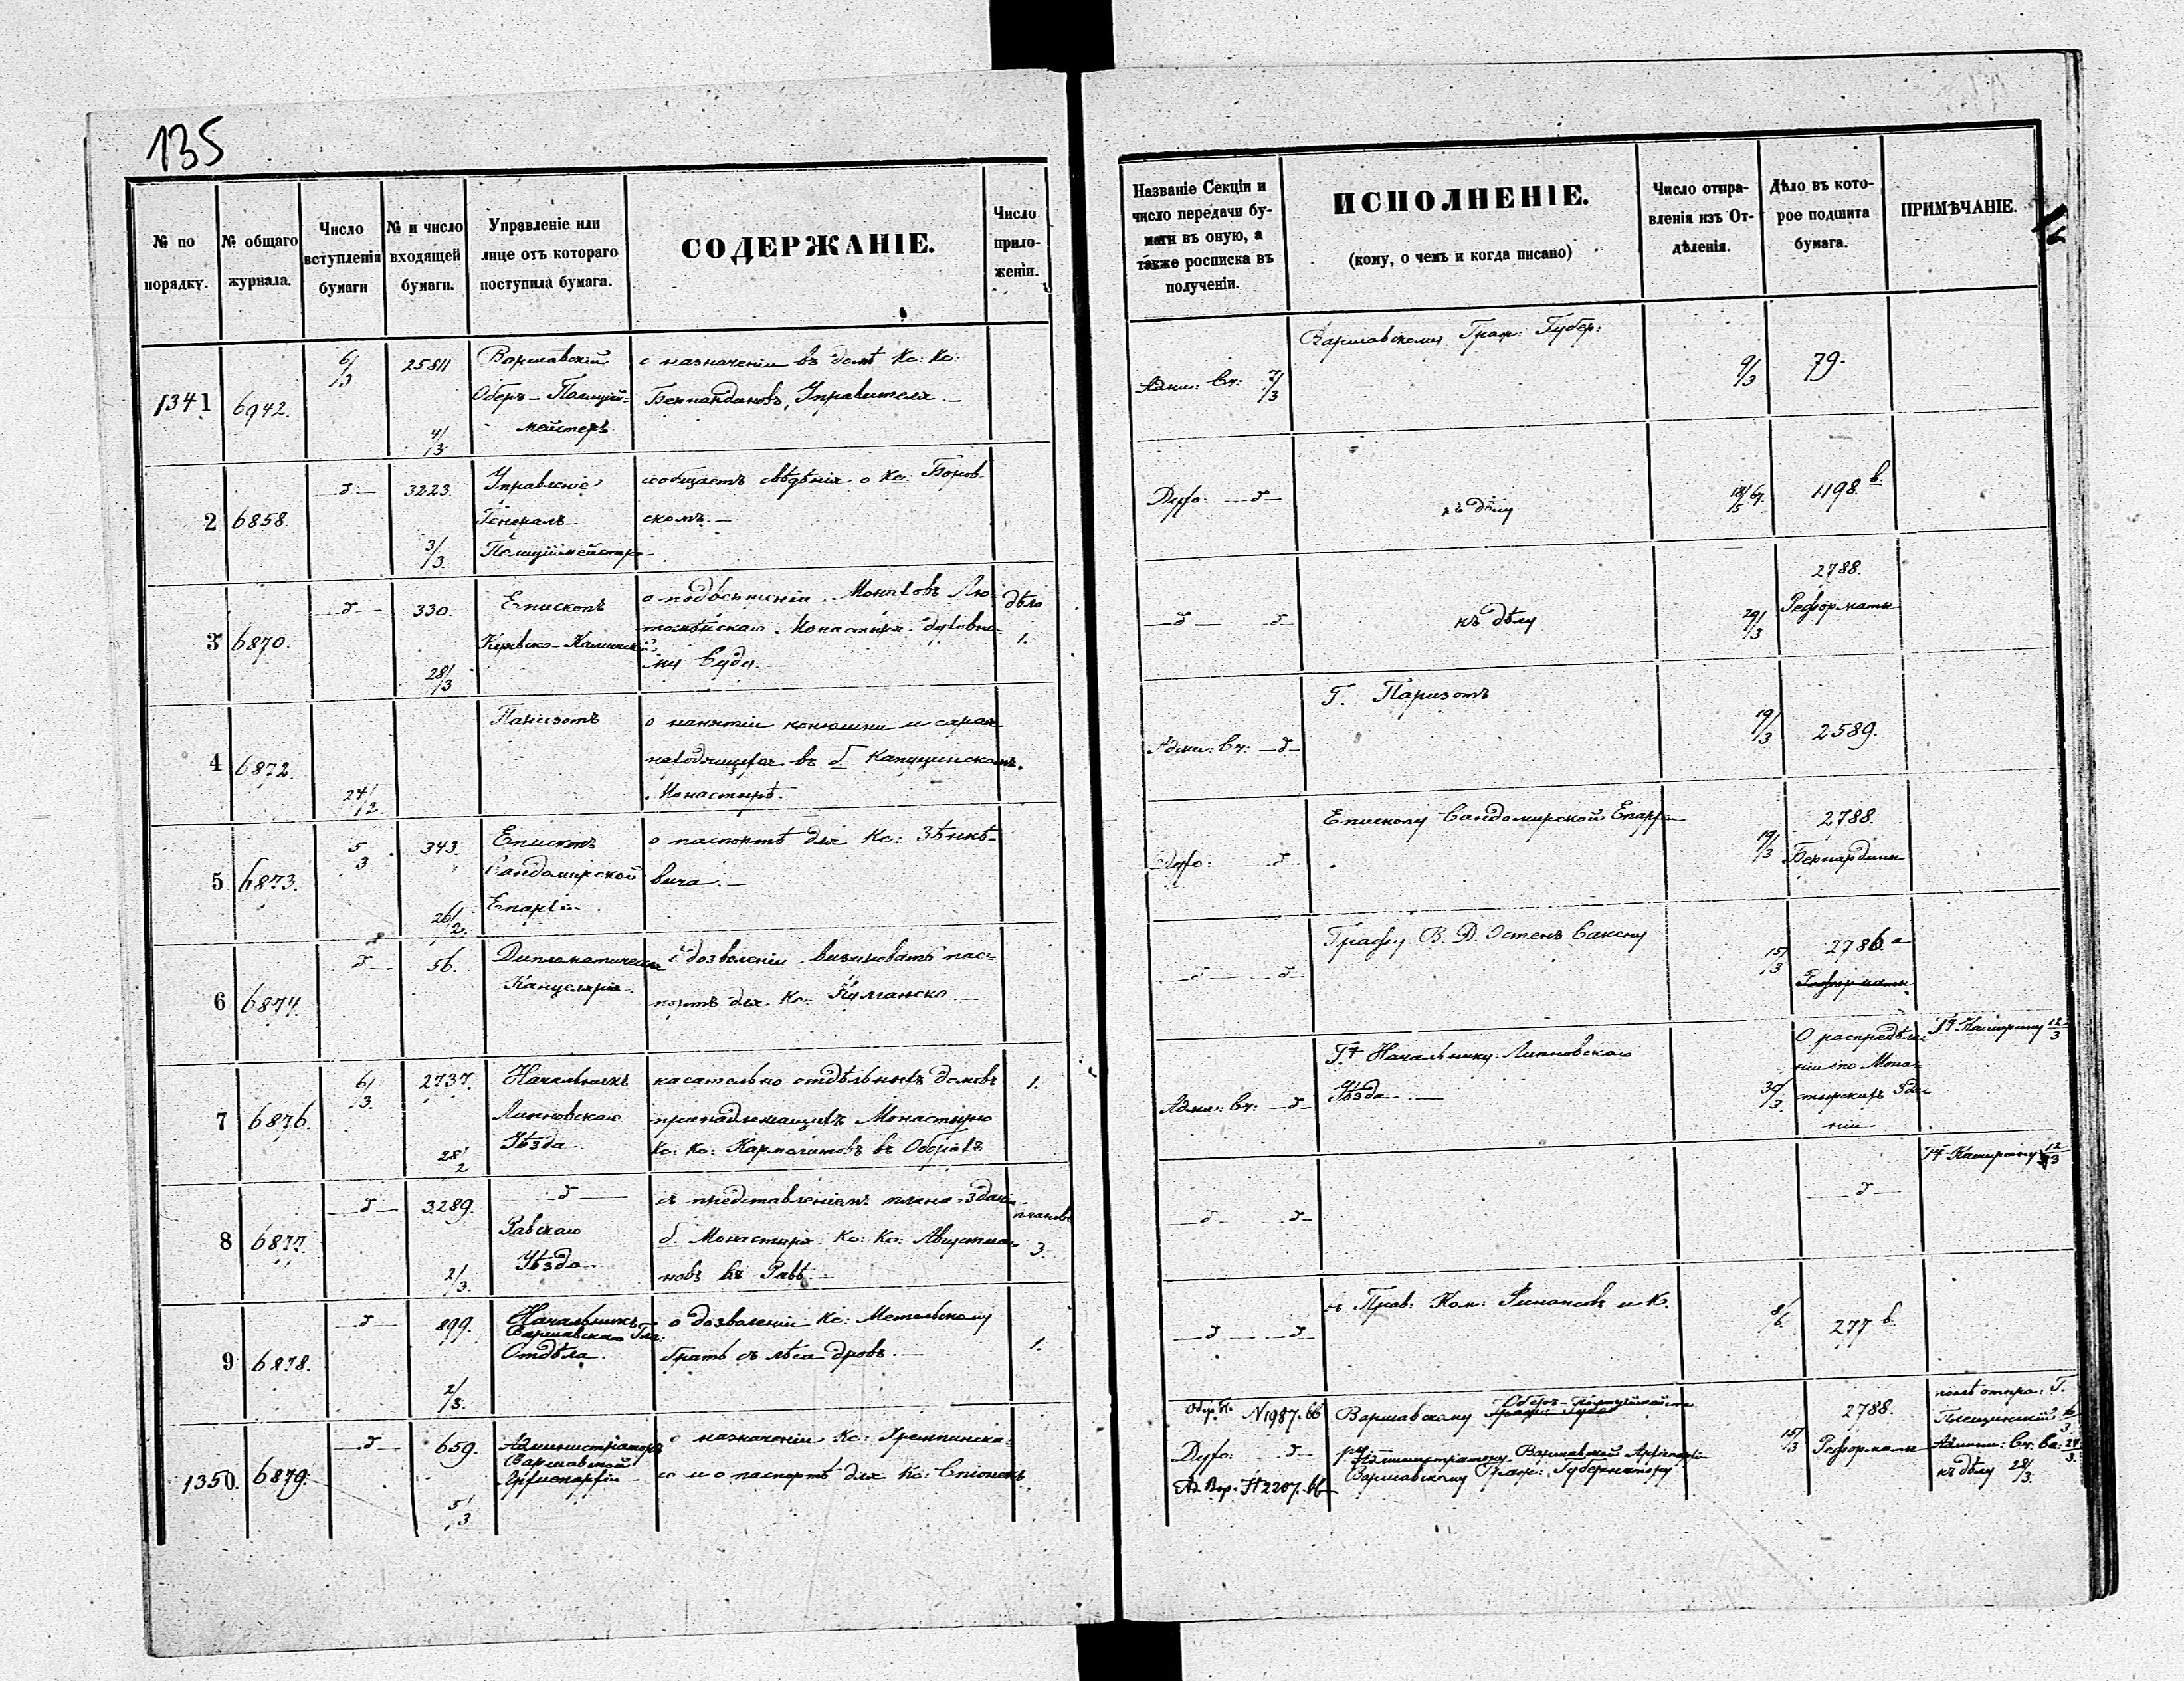 135
№ по порядку.
№ общаго журнала.
Число вступленія бумаги
№ и число входящей бумаги.
Управленіе или лице отъ котораго поступила бумага.
СОДЕРЖАНІЕ.
Число прило-женіи.
Названіе Секціи и число передачи бу-маги въ оную, а также росписка въ полученіи.
ИСПОЛНЕНІЕ.
(кому, о чемъ и когда писано)
Число отпра-вленія изъ От-дѣленія.
Дѣло въ кото-рое подшита бумага.
ПРИМѢЧАНІЕ.
1341 6942. 6/3 25811 4/3
Варшавскій
Оберъ-Полиціи=
мейстеръ
о назначеніи въ домѣ Кс: Кс:
Бернандиновъ, Управителя.—
Адми: Сч: 7/3
Варшавскому Граж: Губер:
9/3 79.
2 6858. —д— 3223. 3/3
Управленіе
Генералъ-
Полиціймейстра
сообщаетъ свѣдѣнія о Кс: Боров-
скомъ.—
Духо: —д—
къ дѣлу
18/5 67. 1198.в.
3 6870. —д— 330. 28/3
Епископъ
Куявско-Калишскій
о подвѣщеніи Монаховъ Лю-
томѣйскаго Монастыря духовно-
му Суду.
дѣло
1.
—д— —д
къ дѣлу
29/3
2788.
Реформаты
4 6872. 24/2.
Паризотъ
о нанятіи конюшни и сарая
находящихся въ б. Капуцинскомъ.
Монастырѣ.
Адми: Сч: —д—
Г. Паризотъ
19/3 2589.
5 6873. 5/3 343. 26/2.
Епископъ
Сандомирской
Епархіи
о паспортѣ для Кс: Зѣнкѣ-
вича.—
Духо: —д—
Епископу Сандомирской Епарх:
19/3
2788.
Бернардины
6 6874. д— 56.
Дипломатическая
Канцелярія
о дозволеніи визировать пас-
портъ для Кс:
—д— —д—
Графу В. Д. Остенъ Сакену
15/3
2786 а
Реформаты
7 6876. 6/3. 2737. 28/2
Начальникъ
Липновскаго
Уѣзда
касательно отдѣльныхъ домовъ
принадлежащихъ Монастырю
Кс: Кс: Кармелитовъ въ Оборахъ
1.
Адми: Сч: —д—
Гну Начальнику Липновскаго
Уѣзда —
30/3.
О распредѣле-
ніи по Мона-
стырскихъ Зда-
ніи
Гну Каширину 12/3
8 6877. —д— 3289. 2/3.
—д—
Равскаго
Уѣзда
съ представленіемъ плана зданія
б. Монастыря Кс: Кс: Августиа-
новъ въ Равѣ.—
плановъ
3.
—д— —д—
—д—
Гну Каширину 12/3
9 6878. —д— 899. 2/3.
Начальникъ
Варшавскаго Там:
Отдѣла
о дозволеніи Кс: Метельскому
брать съ лѣса дровъ.—
1.
—д— —д—
въ Прав: Ком: Финансовъ и К.
8/6. 277 б.
1350. 6879. —д— 659. 5/3
Администраторъ
Варшавской
Архіепархіи
о назначеніи Кс: Гремпинска-
го и о паспортѣ для Кс:
№ 1987.66
Духо: д—
№ 2207.66
Варшавскому Оберъ-Полиціймейстр
Администратору Варшавской Архіепархіи
Варшавскому Граж: Губернатору
15/3
2788.
Реформаты
послѣ отпра: Г.
къ дѣлу 28/3.